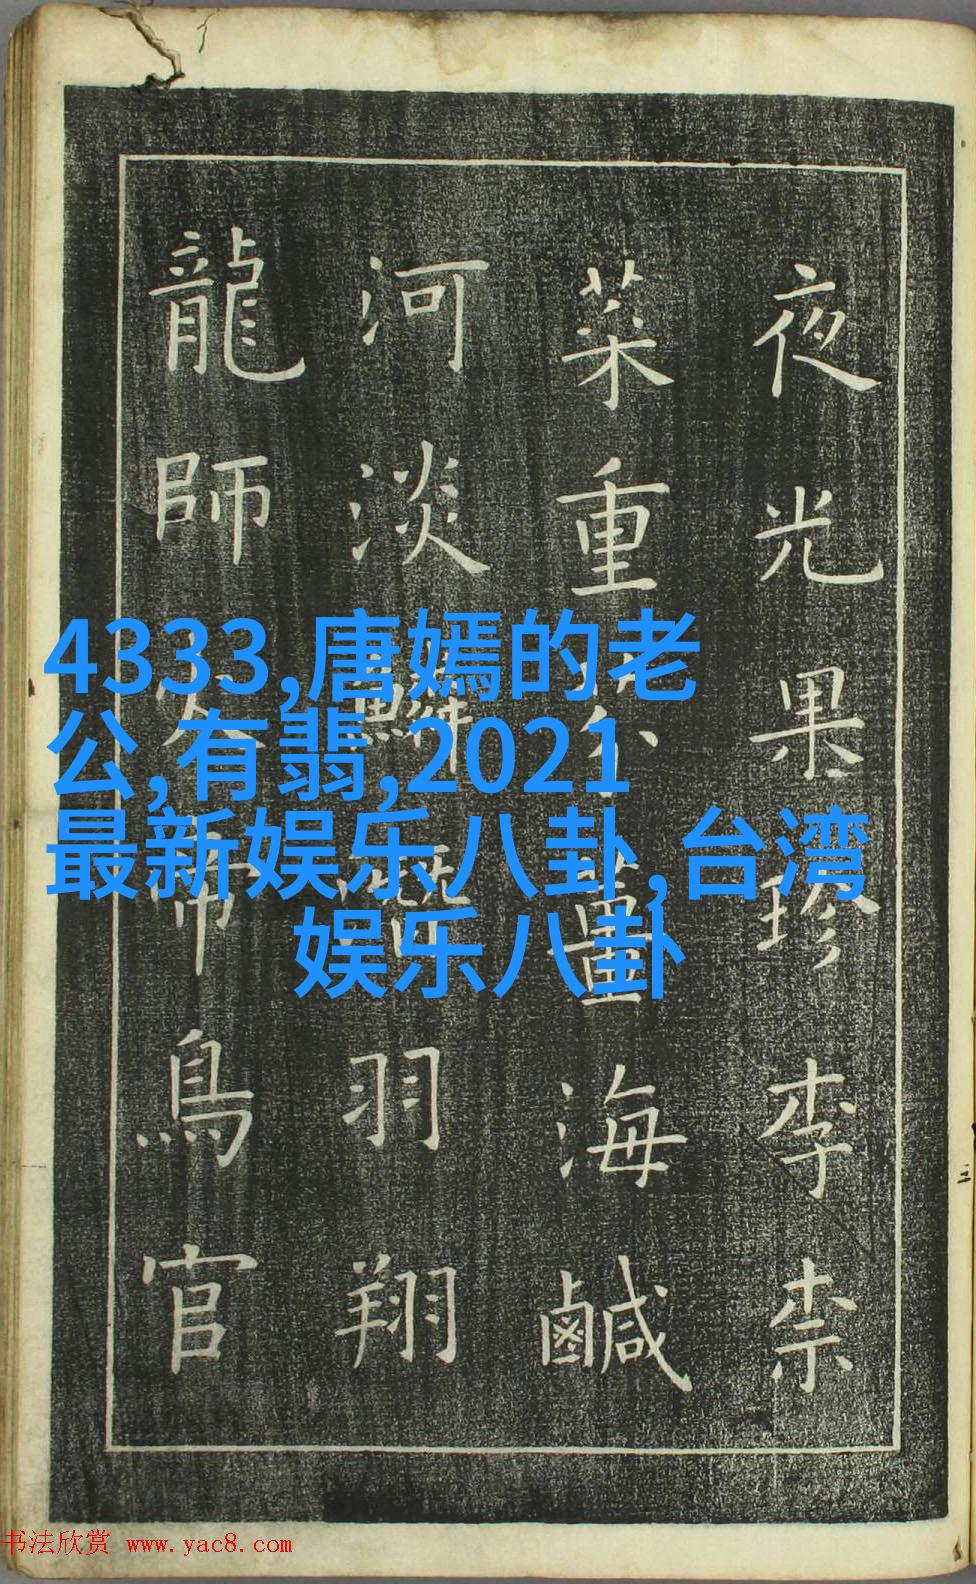 夜光果珍李柰
菜重芥薑海鹹
河淡鱗潛羽翔
龍師火帝鳥官
4333,唐嫣的老
公,有翡,2021
最新娱乐八卦,台湾
娱乐八卦
书法欣赏 www.yac8.com